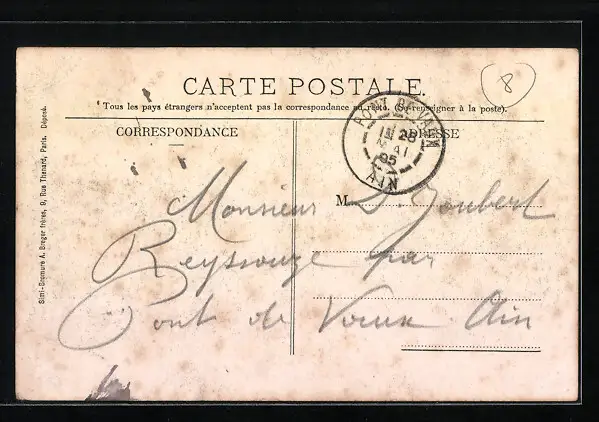 8
CARTE POSTALE.
Tous les pays étrangers n'acceptent pas la correspondance au recto. (Se renseigner à la poste).
CORRESPONDANCE
ADRESSE
PONT DE VAUX
28
MAI
05
AIN
M
Monsieur J. Joubert
Reyssouze par
Pont de Vaux Ain
Simi-Bromure A. Breger frères, 9, Rue Thénard, Paris. Déposé.